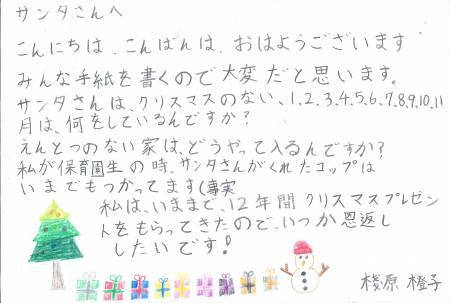 サンタさんへ
こんにちは、こんばんは、おはようございます
みんな手紙を書くので大変だと思います。
サンタさんは、クリスマスのない、1、2、3、4、5、6、7、8、9、10、11
月は、何をしているんですか?
えんとつのない家は、どうやって入るんですか?
私が保育園生の時、サンタさんがくれたコップは
いまでもつかってます(真実
私は、いままで、12年間クリスマスプレゼン
トをもらってきたので、いつか恩返し
したいです!
原 橙子